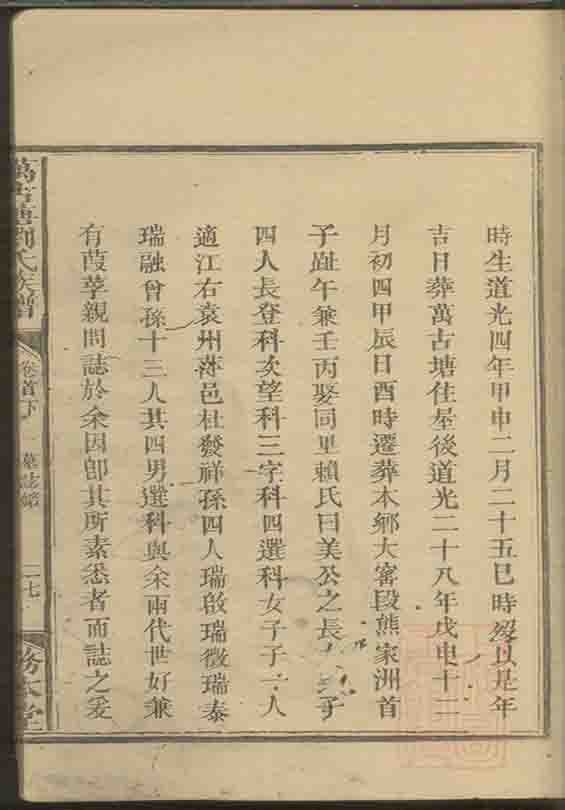 時生道光四年甲申二月二十五巳時歿以是年
吉日葬萬古塘住屋後道光二十八年戊申十二
月初四甲辰日酉時遷葬本鄉大審段熊家洲首
子趾午兼壬丙娶同里賴氏曰美公之長女三子
四人長登科次望科三字科四選科女子子一人
適江右袁州萍邑杜發祥孫四人瑞啟瑞徵瑞泰
瑞融曾孫十三人其四男選科與余兩代世好兼
有葭莩親問誌於余因卽其所素悉者而誌之爰
萬古塘劉氏族譜
卷首下
墓誌銘
二七
務本堂